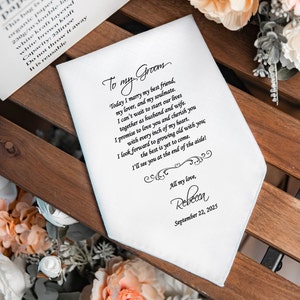 To my Groom
Today I marry my best friend,
my lover, and my soulmate.
I can't wait to start our lives
together as husband and wife.
I promise to love and cherish you
with every inch of my heart.
I look forward to growing old with you;
the best is yet to come.
I'll see you at the end of the aisle!
All my love,
Rebecca
September 22, 2025